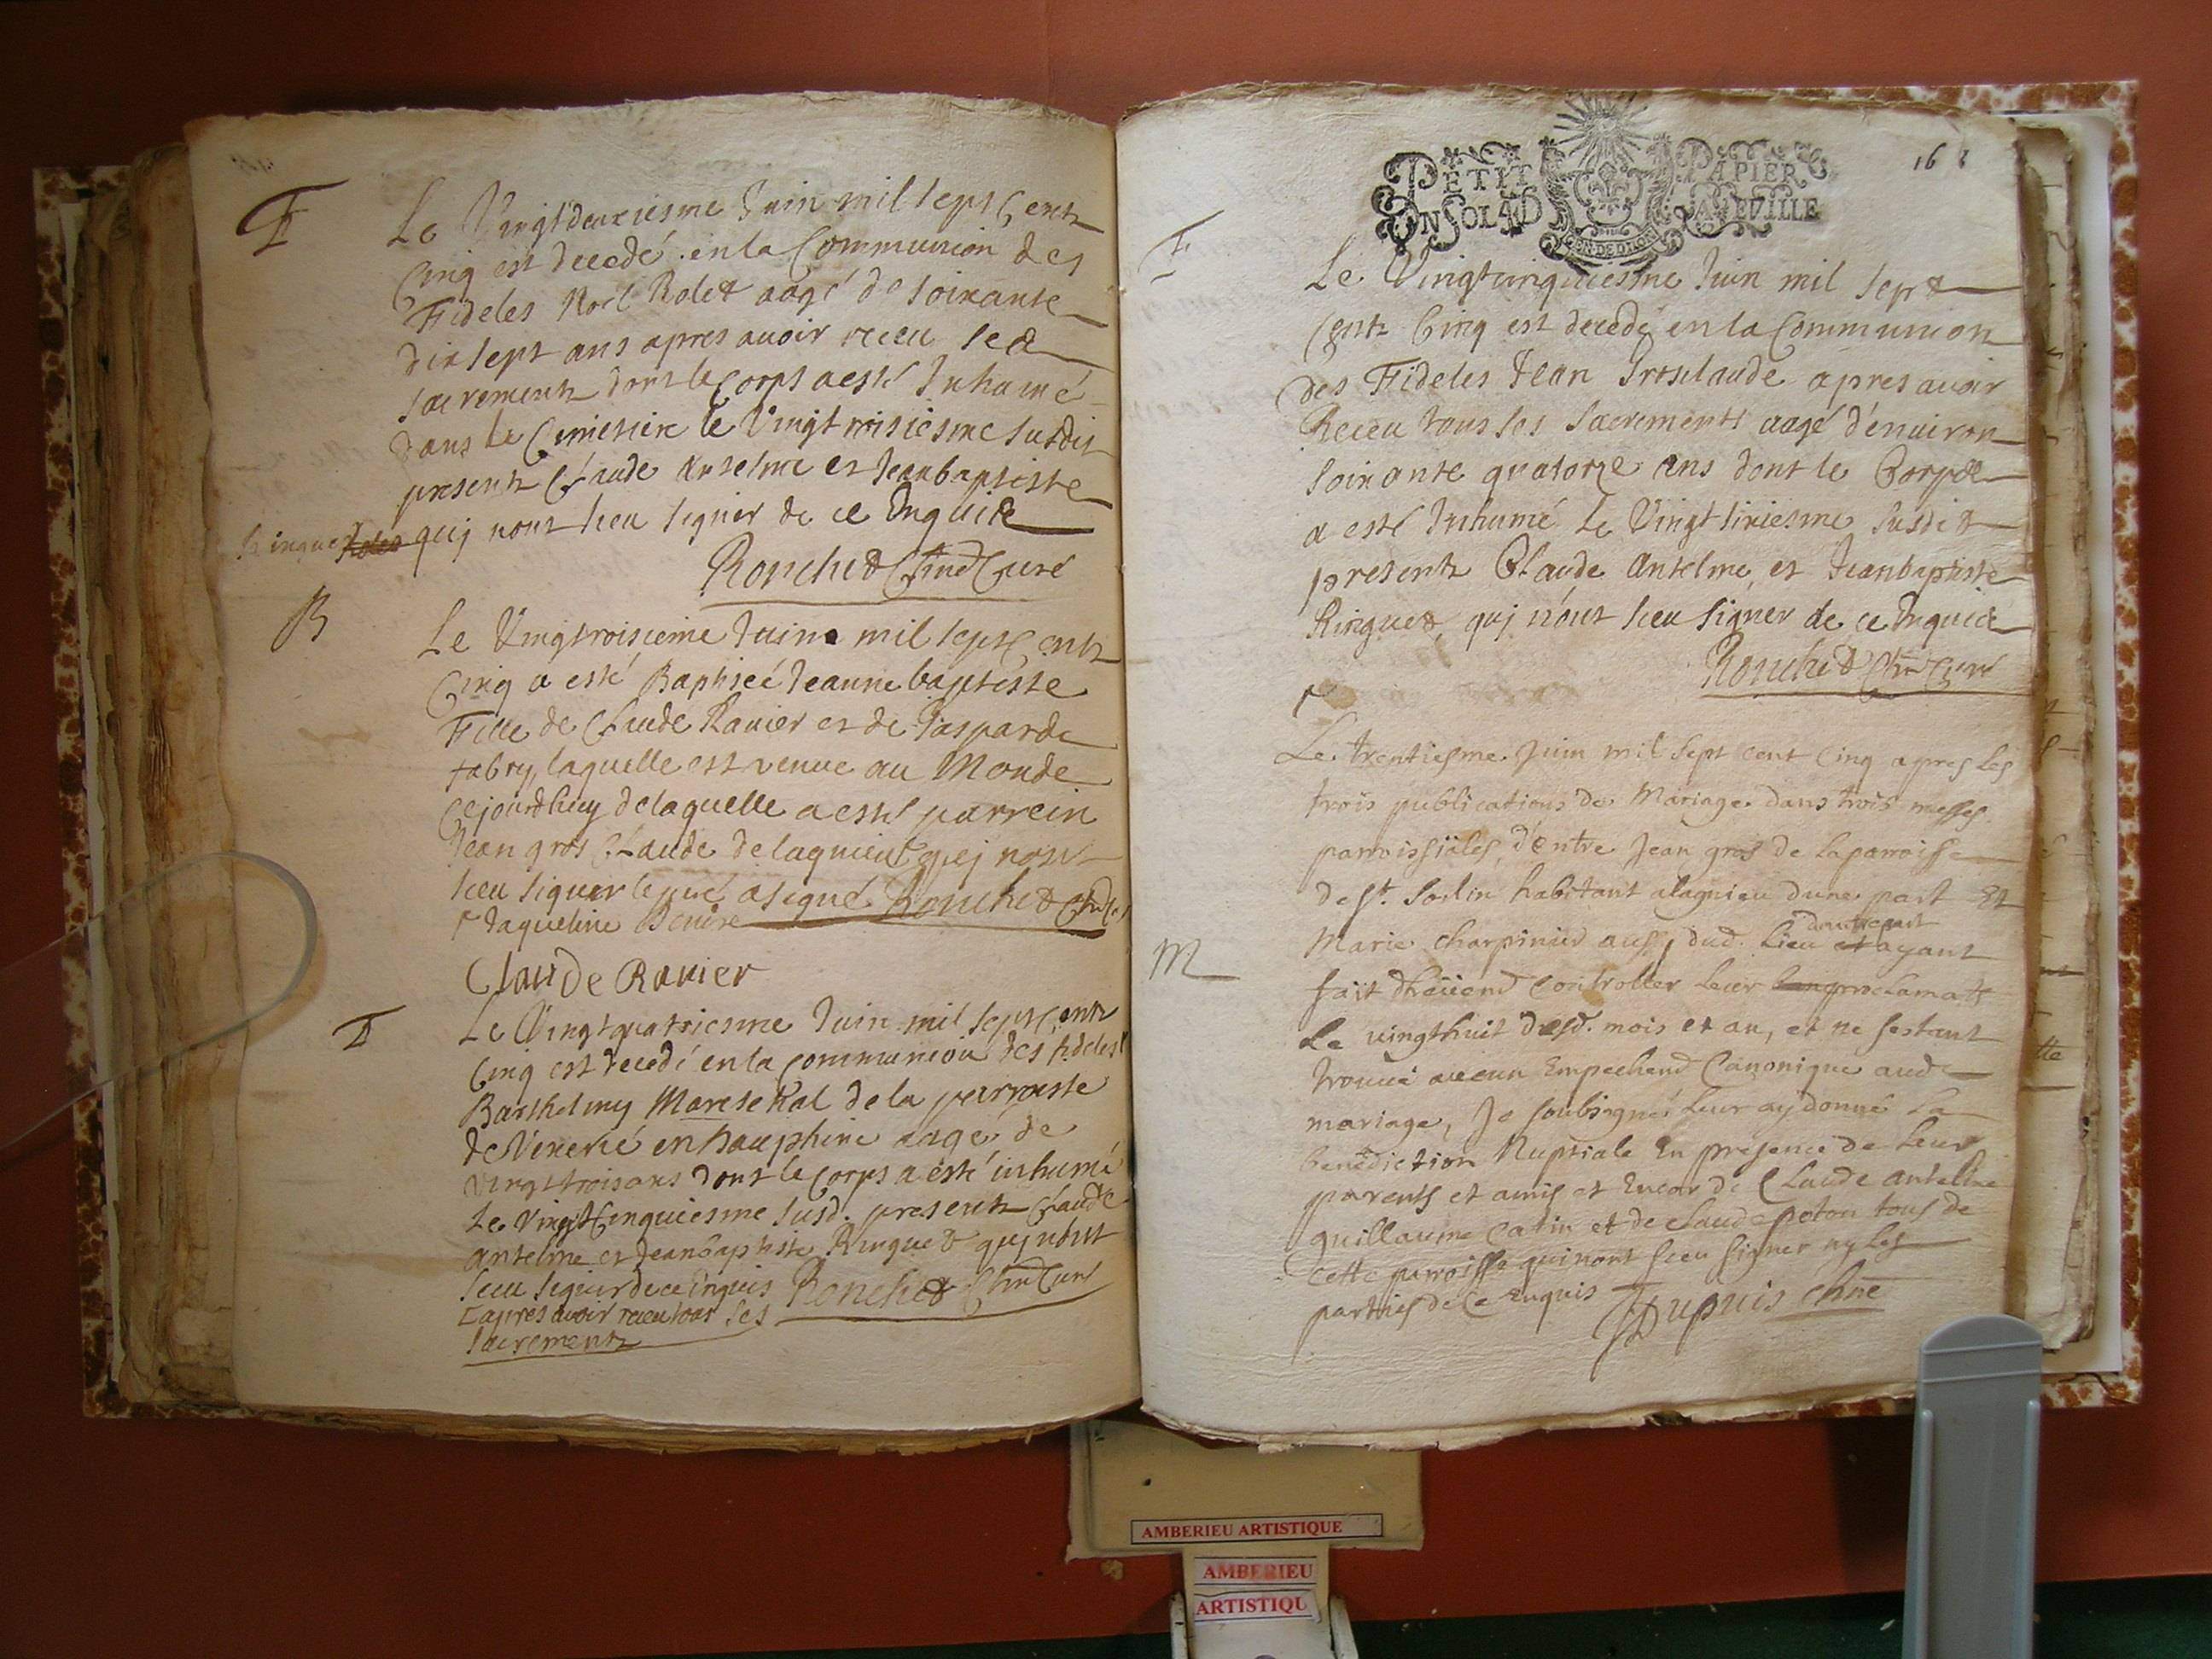 F
Le Vingtdeuxiesme Juin mil sept Cents
Cinq est decedé en la Communion des
Fideles Noel Rolet aagé de soixante
dix sept ans apres auoir receu les
sacrements dont le Corps a esté Inhumé
dans le Cimetiere le Vingt troisiesme susdit
presents Claude Antelme et Jeanbaptiste
Ringuet quj nont sceu signer de ce Enquis
Ronchet Chne Curé
B
Le Vingtroisieme Juin mil sept Cents
Cinq a esté Baptiséé Jeanne baptiste
Fille de Claude Rauier et de Gasparde
Fabry, laquelle est venue au Monde
Cejourdhuy de laquelle a esté parrein
Jean gros Claude de lagnieu quj nont
sceu signer le curé a signé Ronchet Chne
Jaqueline
Claude Ravier
F
Le Vingtquatriesme Juin mil sept Cents
Cinq est decedé en la communion des fideles
Barthelmy Mareschal de la parroisse
de Venerié en Dauphine aagé de
vingt trois ans dont le Corps a esté inhumé
Le Vingt Cinquiesme susd. presents Claude
Antelme et Jeanbaptiste Ringuet quj nont
sceu signer de ce Enquis Ronchet Chne Curé
apres auoir receu tous ses
sacrements
PETIT PAPIER
UN SOL 4 D LA FEUILLE
GEN DE DIJON
16
F
Le Vingtcinquiesme Juin mil sept
Cents Cinq est decedé en la Communion
des Fideles Jean Grosclaude apres auoir
Receu tous ses Sacrements aagé d'enuiron
soixante quatorze ans dont le Corps
a esté Inhumé Le Vingt sixiesme susdit
presents Claude Antelme et Jeanbaptiste
Ringuet, quj n'ont sceu signer de ce Enquis
Ronchet Chne Curé
Le trentiesme Juin mil Sept cent Cinq apres les
trois publications de Mariage dans trois messes
parroissiales, d'entre Jean gros de la parroisse
de St. Sorlin habitant a lagnieu dune part Et
dautre part
Marie charpinier aussy dud. Lieu et ayant
M
fait controller leur proclamats
Le vingthuit dusd. mois et an, et ne sestant
trouué aucun Empechend Canonique aud
mariage, Je soubsigné leur ay donné la
benediction Nuptiale En presence de leurs
parents et amis et Encor de Claude antelme
guillaume Catin et de Claude poton tous de
cette parroisse qui nont sceu signer ny les
parties de Ce Enquis Dupuis chne
AMBERIEU ARTISTIQUE
AMBERIEU
ARTISTIQU